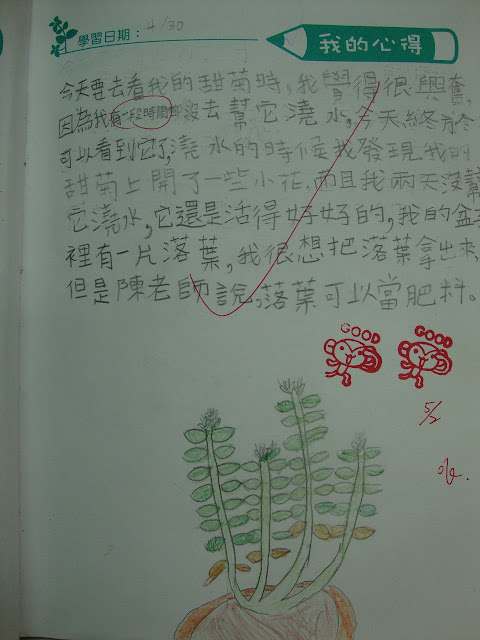 學習日期：4/30
我的心得
今天要去看我的甜菊時，我覺得很興奮，
因為我有一段時間都沒去幫它澆水，今天終於
可以看到它了，澆水的時候我發現我的
甜菊上開了一些小花，而且我兩天沒幫
它澆水，它還是活得好好的，我的盆子
裡有一片落葉，我很想把落葉拿出來，
但是陳老師說，落葉可以當肥料。
GOOD GOOD
5/2